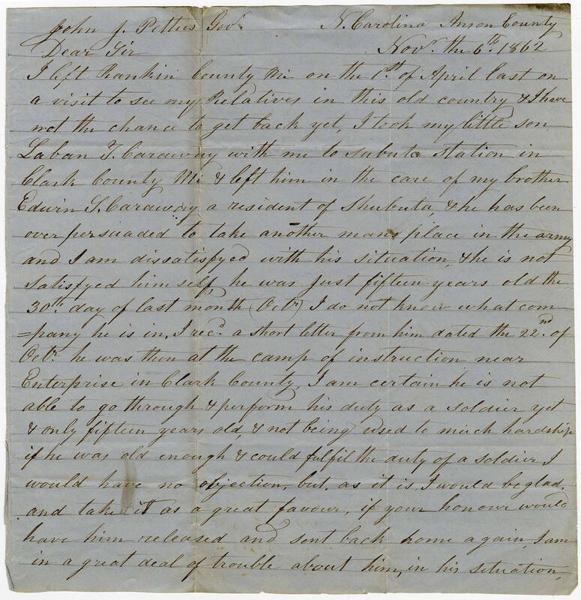 John J. Petties Gov. N. Carolina Anson County
Dear Sir Nov. the 6th 1862
I left Rankin County Mi on the 1st of April last on
a visit to see my Relatives in this old country & I have
not the chance to get back yet, I took my little son
Laban T. Caraway with me to Subuta Station in
Clark County Mi & left him in the care of my brother
Edwin S. Caraway a resident of Shubuta, & he has been
over persuaded to take another mans place in the army
and I am dissatisfyed with his situation, & he is not
satisfyed him self, he was just fifteen years old the
30th day of last month (Octr) I do not know what com
=pany he is in, I recd a short letter from him dated the 22nd of
Octr he was then at the camp of instruction near
Enterprise in Clark County, I am certain he is not
able to go through & perform his duty as a soldier yet
& only fifteen years old & not being used to much hardship
if he was old enough & could fulfil the duty of a soldier I
would have no objection, but, as it is, I would be glad,
and take it as a great favour, if your honour would
have him released and sent back home again, I am
in a great deal of trouble about him, in his situation,